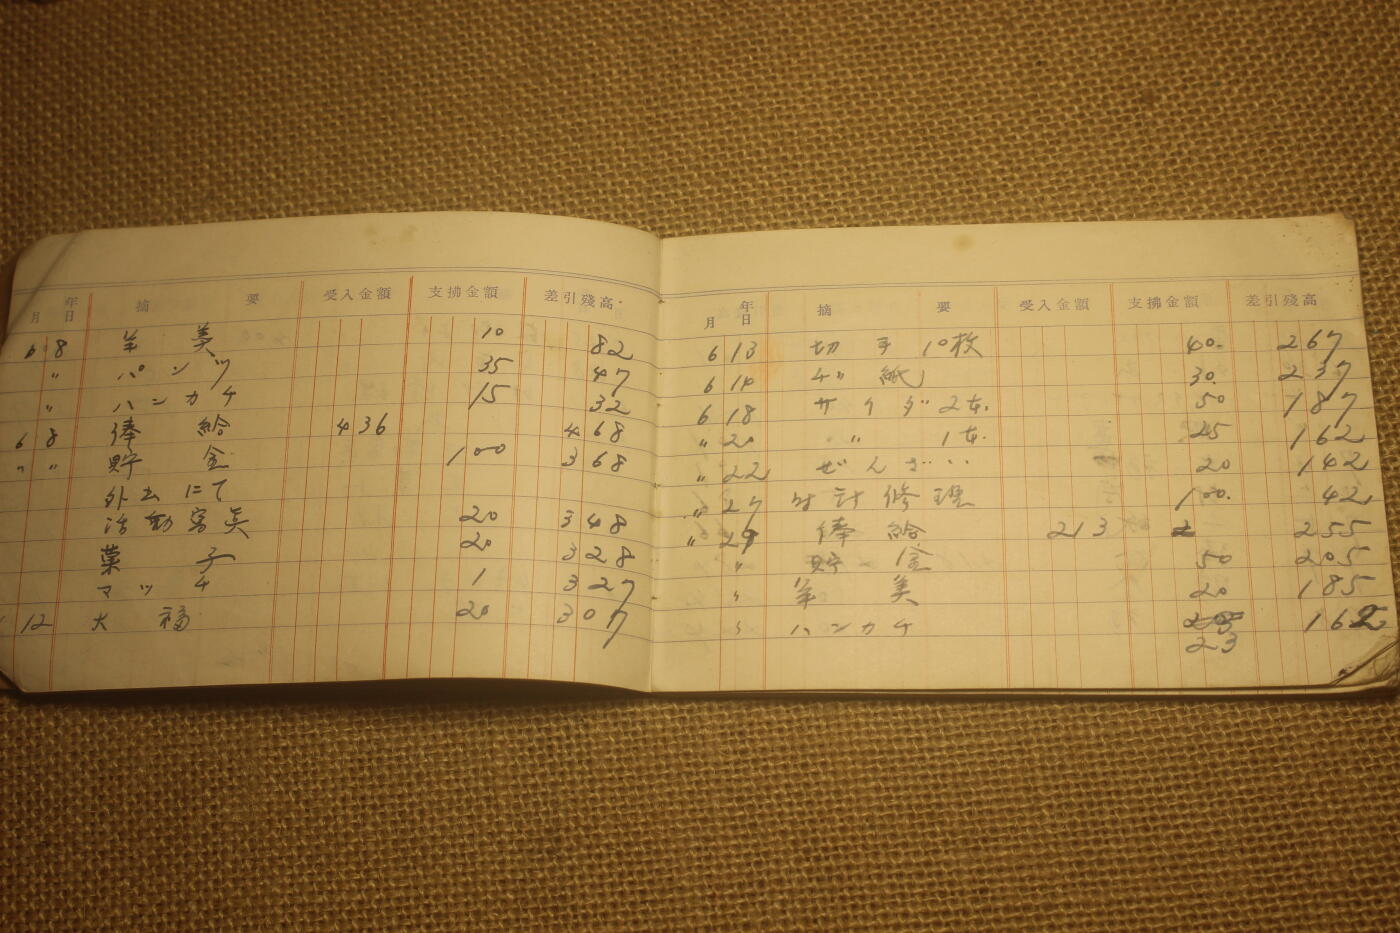 年 月 日 摘要 受入金額 支拂金額 差引殘高
6 8 羊美 10 82
〃 パンツ 35 47
〃 ハンカチ 15 32
6 8 俸給 436 468
〃 〃 貯金 100 368
外出にて
活動寫眞 20 348
菓子 20 328
マッチ 1 327
12 大福 20 307
年 月 日 摘要 受入金額 支拂金額 差引殘高
6 13 切手10枚 40. 267
6 14 チリ紙 30. 237
6 18 サイダ〃2本. 50 187
〃 20 〃 1本. 25 162
〃 22 ぜんざい 20 142
〃 27 時計修理 100. 42
〃 29 俸給 213 255
〃 貯金 50 205
〃 羊美 20 185
〃 ハンカチ 162
23